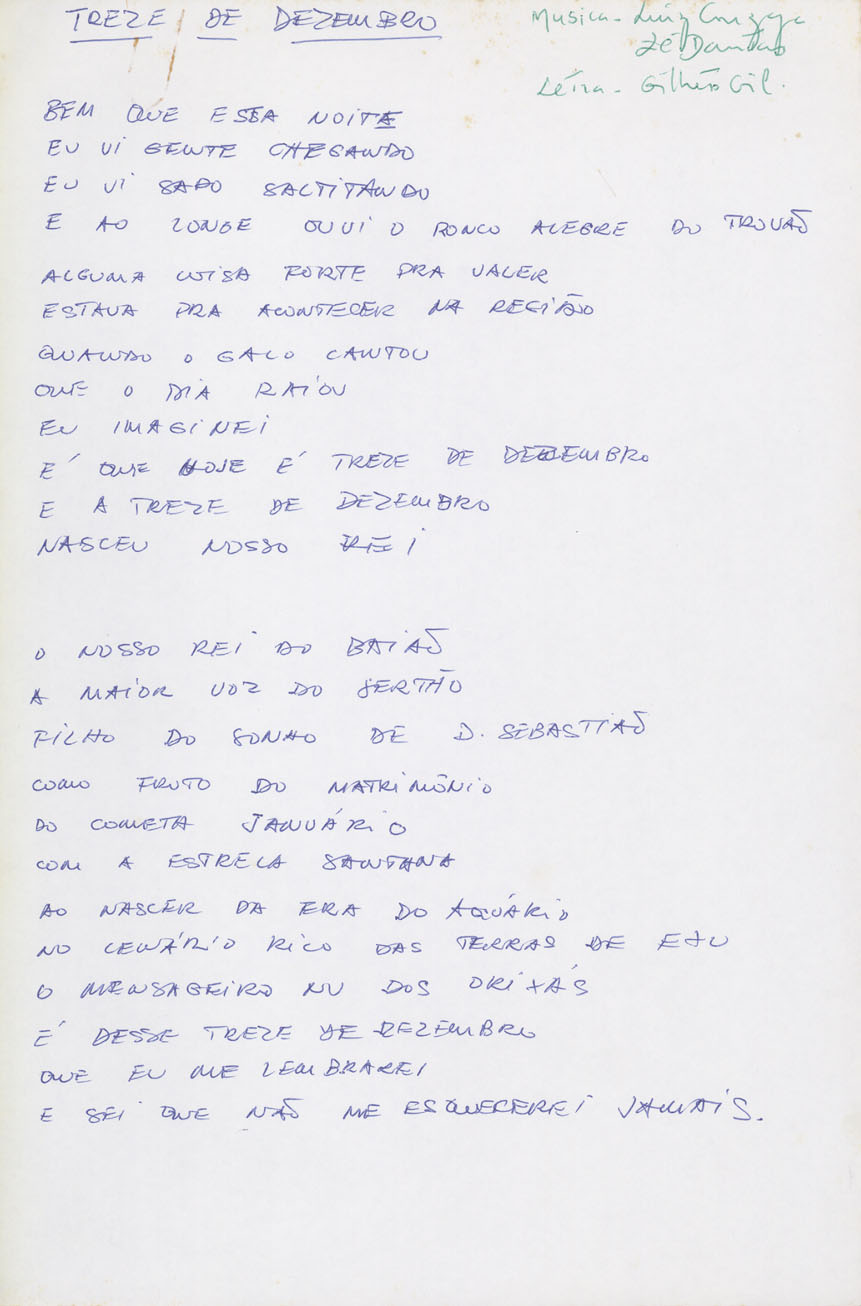 TREZE DE DEZEMBRO
Musica - Luiz Gonzaga
Zé Dantas
Letra - Gilberto Gil.
BEM QUE ESSA NOITE
EU VI GENTE CHEGANDO
EU VI SAPO SALTITANDO
E AO LONGE OUVI O RONCO ALEGRE DO TROVÃO
ALGUMA COISA FORTE PRA VALER
ESTAVA PRA ACONTECER NA REGIÃO
QUANDO O GALO CANTOU
QUE O DIA RAIOU
EU IMAGINEI
É QUE HOJE É TREZE DE DEZEMBRO
E A TREZE DE DEZEMBRO
NASCEU NOSSO REI
O NOSSO REI DO BAIÃO
A MAIOR VOZ DO SERTÃO
FILHO DO SONHO DE D. SEBASTIÃO
COMO FRUTO DO MATRIMÔNIO
DO COMETA JANUÁRIO
COM A ESTRELA SANTANA
AO NASCER DA ERA DO AQUÁRIO
NO CENÁRIO RICO DAS TERRAS DE EXU
O MENSAGEIRO NU DOS ORIXÁS
É DESSE TREZE DE DEZEMBRO
QUE EU ME LEMBRAREI
E SEI QUE NÃO ME ESQUECEREI JAMAIS.